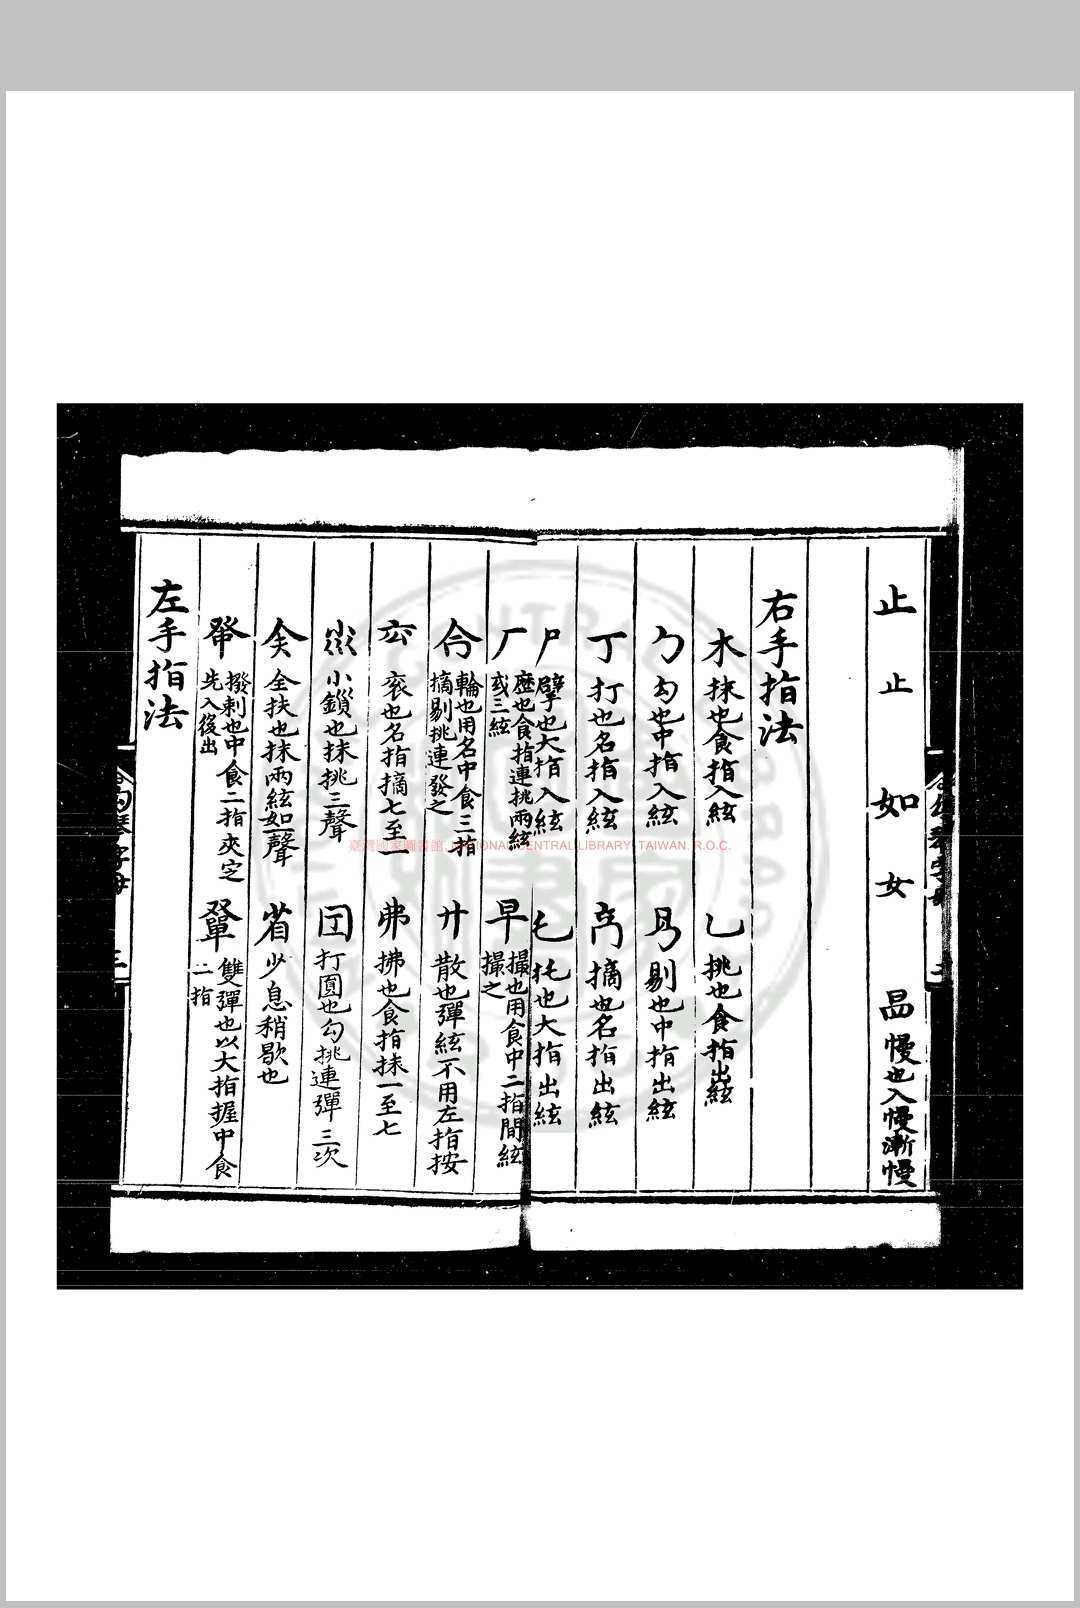 止 止 如 女 昷 慢也入慢漸慢
右手指法
木 抹也食指入絃 乚 挑也食指出絃
勹 勾也中指入絃 剔也中指出絃
丁 打也名指入絃 摘也名指出絃
尸 擘也大指入絃 乇 托也大指出絃
厂 歷也食指連挑兩絃
或三絃
早 撮也用食中二指間絃
撮之
輪也用名中食三指
摘剔挑連發之
廾 散也彈絃不用左指按
袞也名指摘七至一 弗 拂也食指抹一至七
小鎖也抹挑三聲 打圓也勾挑連彈三次
全扶也抹兩絃如一聲 省 少息稍歇也
撥剌也中食二指夾定
先入後出
雙彈也以大指握中食
二指
左手指法
臺灣國家圖書館, NATIONAL CENTRAL LIBRARY, TAIWAN, R.O.C.